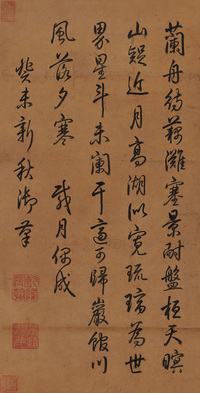 蘭舟藕灘塞景耐盤桓天暝
山疑近月高湖似寬琉璃為世
界星斗未闌干適可歸巖館川
風落夕寒 載月偶成
癸未新秋御筆